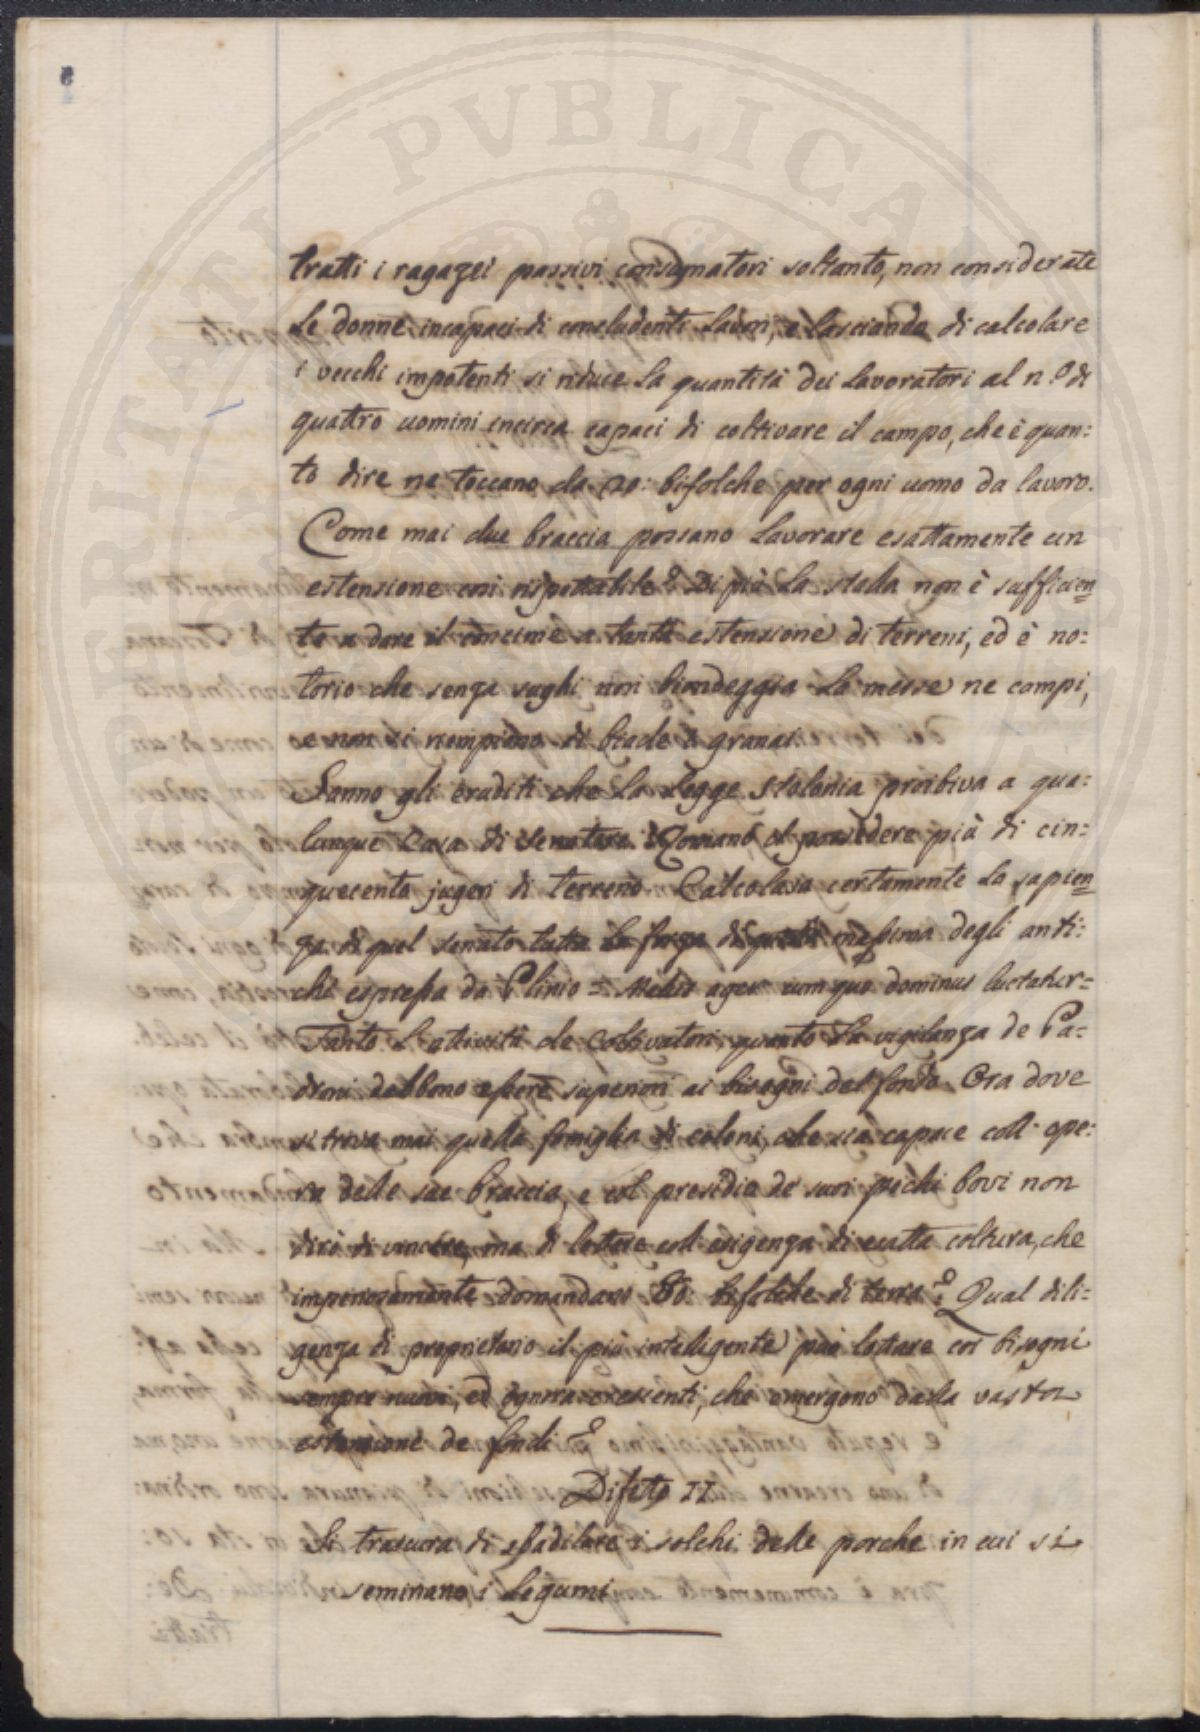 tratti i ragazzi passivi consumatori soltanto, non considerate
Le donne incapaci di concludenti Lavori, e lasciando di calcolare
i vecchi impotenti si riduce La quantità dei Lavoratori al n.o di
quattro uomini incirca capaci di coltivare il campo, che è quan:
to dire ne toccano da 20: bifolche per ogni uomo da lavoro.
Come mai due braccia possano Lavorare esattamente un
estensione così rispettabile? Di più La stalla non è sufficien=
te a dare il concime a tanta estensione di terreni, ed è no:
torio che senza sughi non biondeggia La messe ne campi,
e non si riempiono di biade i granai.
Sanno gli eruditi che La Legge Stolonia proibiva a qua:
lunque Casa di Senatore Romano il possedere più di cin:
quecento jugeri di terreno. Calcolava certamente La sapien=
za di quel Senato tutta La forza di questa massima degli anti:
chi espressa da Plinio = Melior ager cum quo dominus luctatur =
Tanto L'attività de Coltivatori, quanto La vigilanza de Pa=
droni debbono essere superiori ai bisogni del fondo. Ora dove
si trova mai quella famiglia di coloni, che sia capace coll' ope:
ra delle sue braccia, e col presidio de' suoi pochi bovi non
dirò di vincere, ma di lottare coll' esigenza di esatta coltura, che
imperiosamente domandano 80: bifolche di terra? Qual dili:
genza di proprietario il più intelligente può lottare coi bisogni
sempre nuovi, ed ognora crescenti, che emergono dalla vasta
estensione de fondi?
Difetto II
Si trascura di sbadilare i solchi delle porche in cui si
seminano i Legumi
PERITATI PVBLICAE